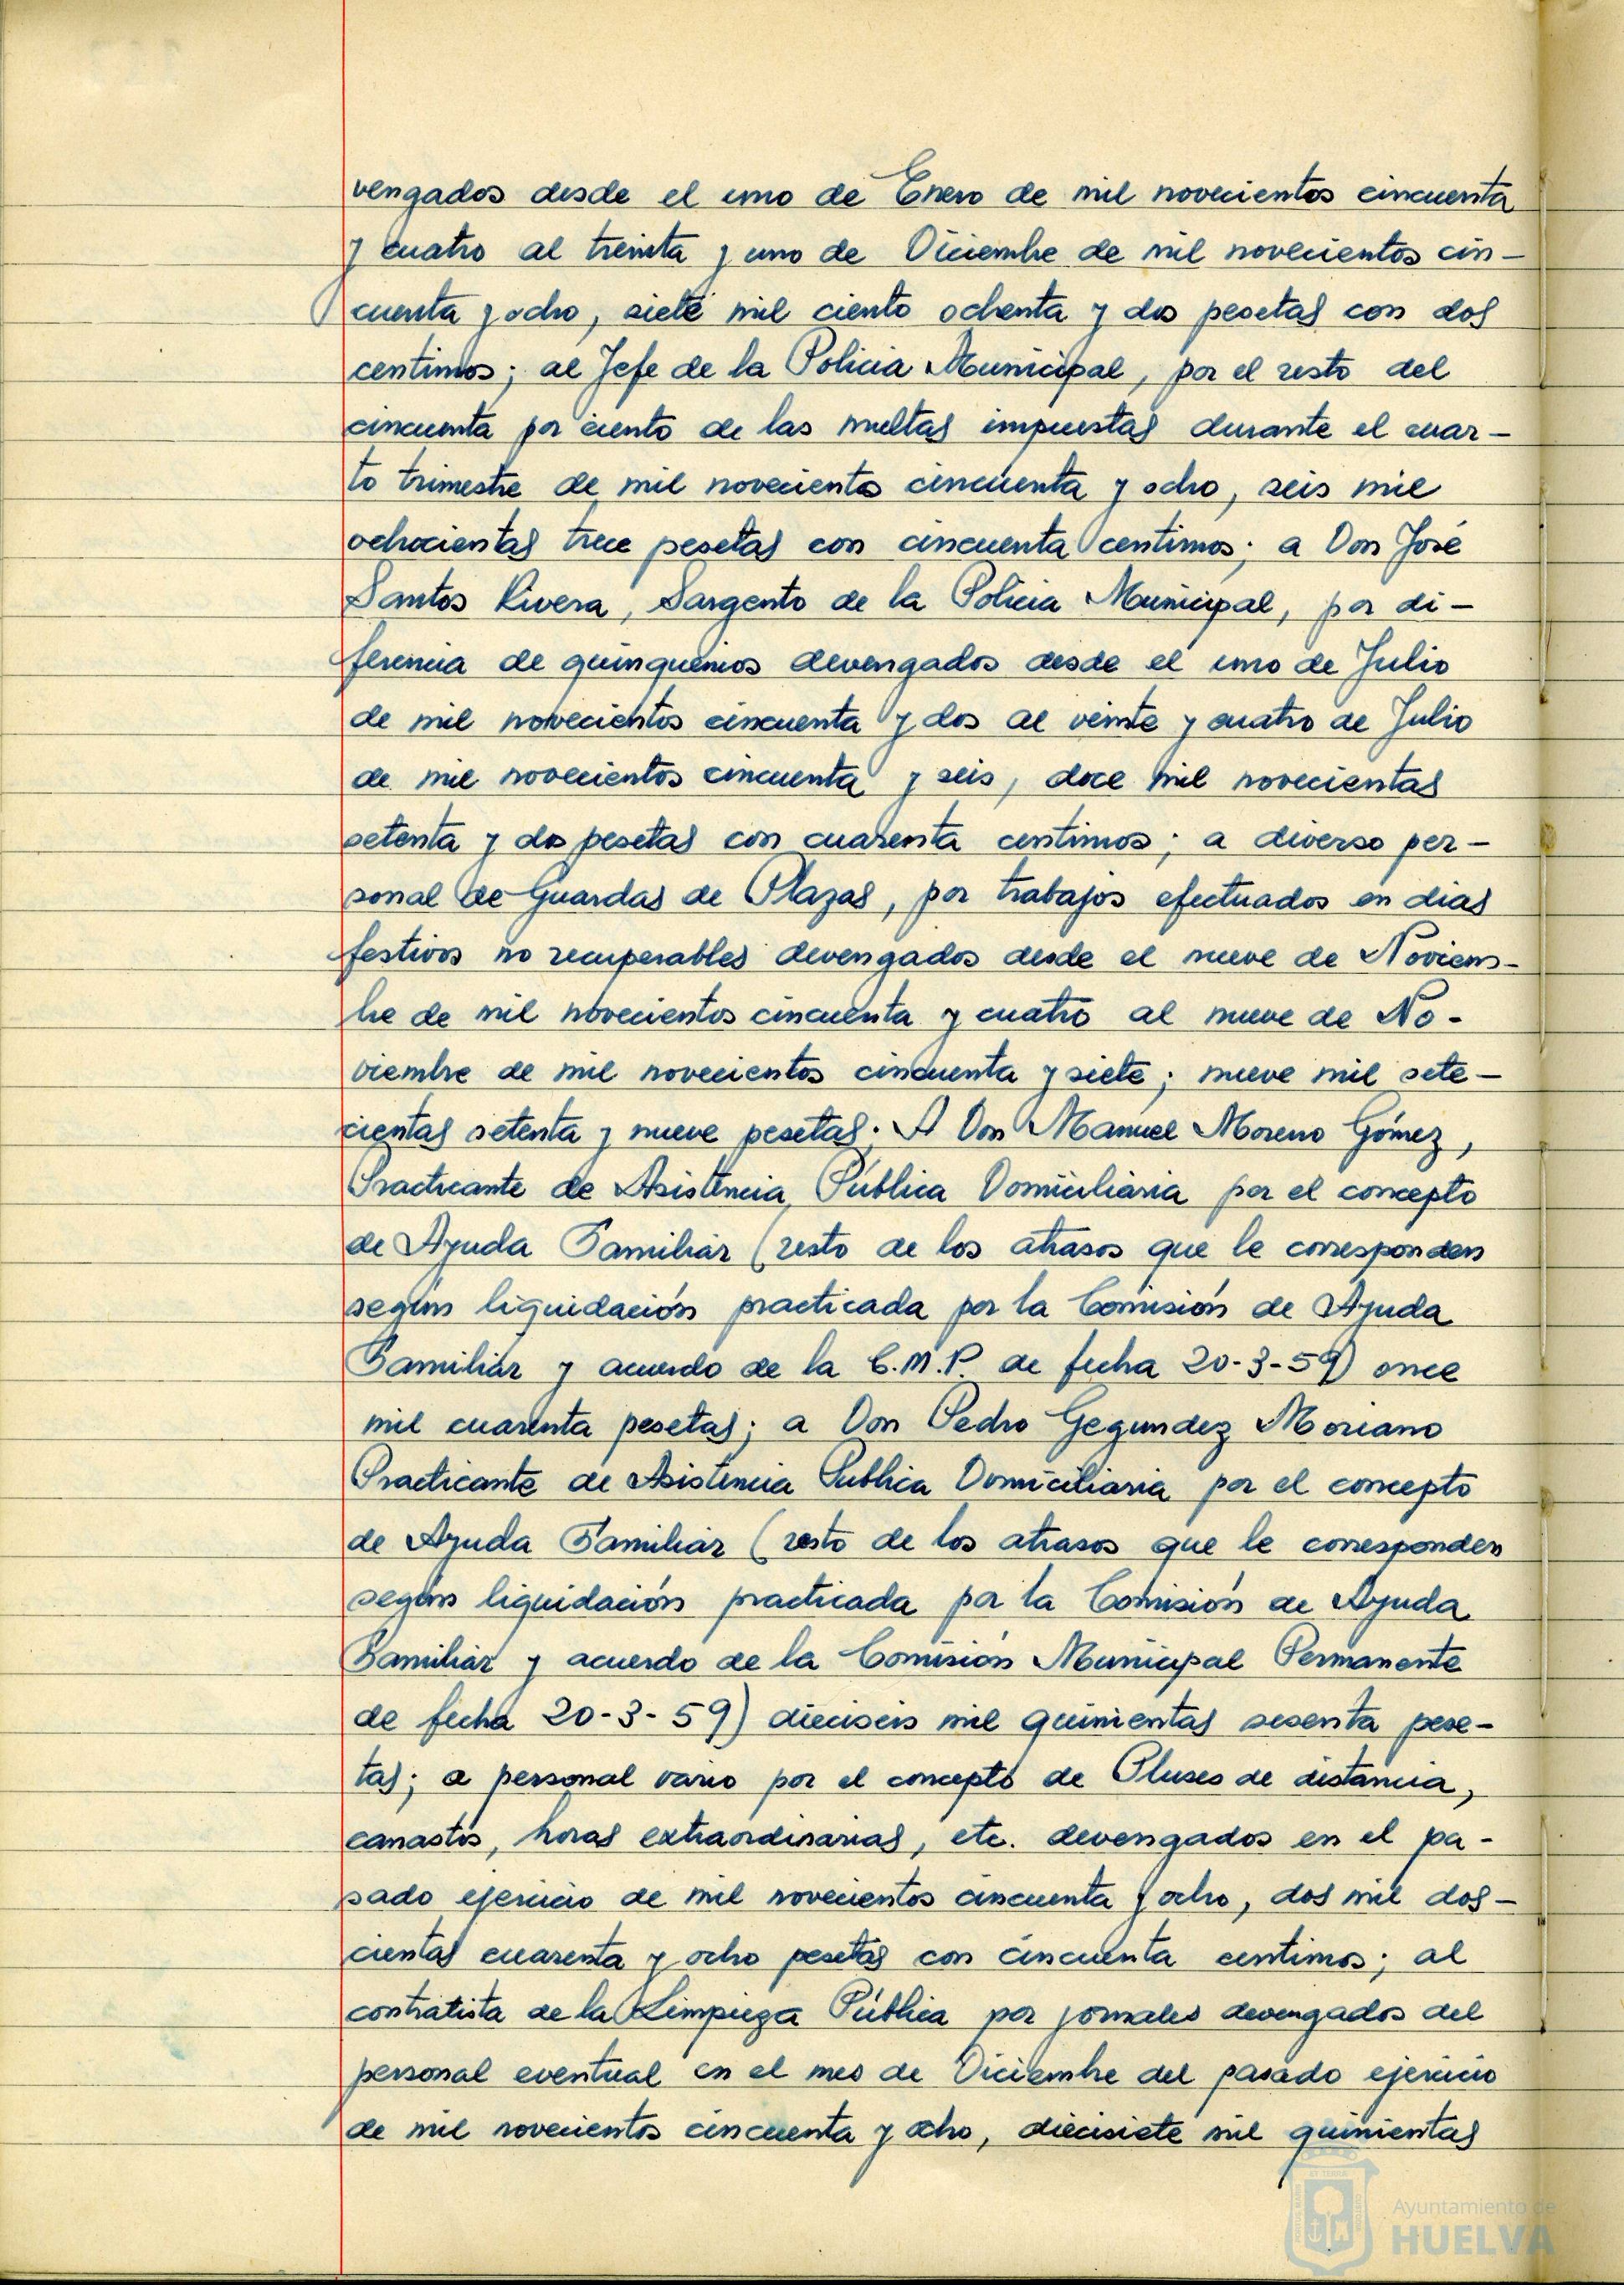 vengados desde el uno de Enero de mil novecientos cincuenta
y cuatro al treinta y uno de Diciembre de mil novecientos cin-
cuenta y ocho, siete mil ciento ochenta y dos pesetas con dos
centimos; al Jefe de la Policia Municipal, por el resto del
cincuenta por ciento de las multas impuestas durante el cuar-
to trimestre de mil novecientos cincuenta y ocho, seis mil
ochocientas trece pesetas con cincuenta centimos; a Don José
Santos Rivera, Sargento de la Policia Municipal, por di-
ferencia de quinquenios devengados desde el uno de Julio
de mil novecientos cincuenta y dos al veinte y cuatro de Julio
de mil novecientos cincuenta y seis, doce mil novecientas
setenta y dos pesetas con cuarenta centimos; a diverso per-
sonal de Guardas de Plazas, por trabajos efectuados en dias
festivos no recuperables devengados desde el nueve de Noviem-
bre de mil novecientos cincuenta y cuatro al nueve de No-
viembre de mil novecientos cincuenta y siete; nueve mil sete-
cientas setenta y nueve pesetas. A Don Manuel Moreno Gómez,
Practicante de Asistencia Pública Domiciliaria por el concepto
de Ayuda Familiar (resto de los atrasos que le corresponden
según liquidación practicada por la Comisión de Ayuda
Familiar y acuerdo de la C.M.P. de fecha 20-3-59) once
mil cuarenta pesetas; a Don Pedro Gegundez Moriano
Practicante de Asistencia Publica Domiciliaria por el concepto
de Ayuda Familiar (resto de los atrasos que le corresponden
según liquidación practicada por la Comisión de Ayuda
Familiar y acuerdo de la Comisión Municipal Permanente
de fecha 20-3-59) dieciseis mil quinientas sesenta pese-
tas; a personal vario por el concepto de Pluses de distancia,
canastos, horas extraordinarias, etc. devengados en el pa-
sado ejercicio de mil novecientos cincuenta y ocho, dos mil dos-
cientas cuarenta y ocho pesetas con cincuenta centimos; al
contratista de la Limpieza Pública por jornales devengados del
personal eventual en el mes de Diciembre del pasado ejercicio
de mil novecientos cincuenta y ocho, diecisiete mil quinientas
Ayuntamiento de
HUELVA